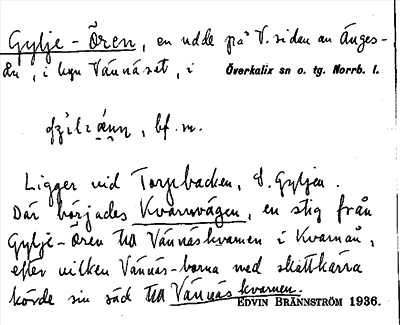 Gylje-Ören, en udde på V. sidan av Änges-
ån, i byn Vännäset, i Överkalix sn o. tg. Norrb. l.
bf. m.
Ligger vid Torpbacken, S. Gyljen.
Där börjades Kvarnvägen, en stig från
Gylje-Ören till Vännäskvarnen i Kvarnån,
efter vilken Vännäs-borna med skottkärra
körde sin säd till Vännäskvarnen.
EDVIN BRÄNNSTRÖM 1936.